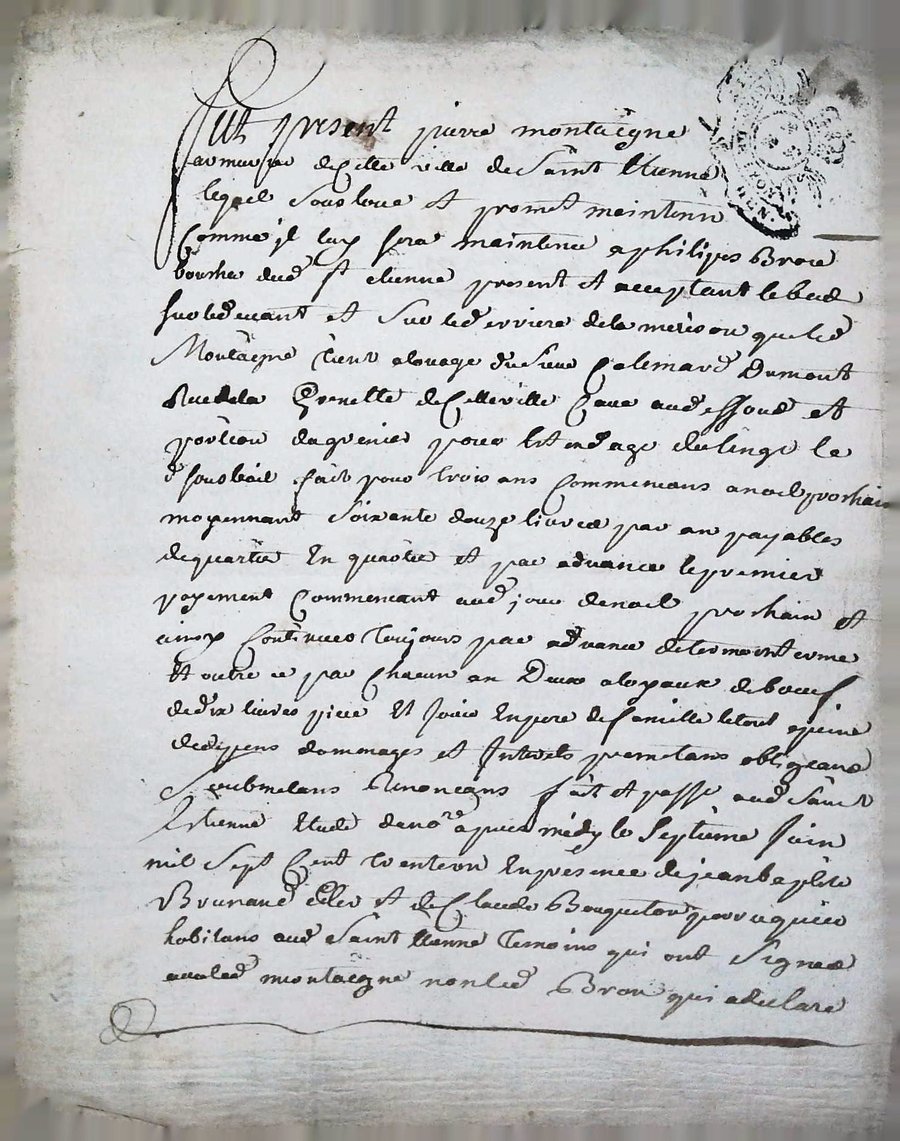 Fut present pierre montaigne
armurier de cette ville de Saint Etienne
lequel sousloue et promet maintenir
Comme il luy sera maintenu a philipes Brou
boucher dud st etienne present et acceptant le bas
sur le devant et sur le derriere de la maison que led
Montaigne tient a louage du sieur Calemard Dumont
Rue de la Grenette de Cette ville Cave au dessous et
portion du grenier pour letendage du linge le
d sousbail fait pour trois ans Commencans a noel prochain
moyennant soixante douze livres par an payables
de quartier En quartier et par advance le premier
payement Commencant aud jour de noel prochain et
ainsy Continuer toujours par advance de terme en terme
Et outre ce par Chacun an Deux aloyaux de boeuf
de dix livres piece Et jouir En pere de famille le tout a peine
de depens dommages et Interets promettans obligeans
Soubmettans Renoncans fait et passé aud Saint
Etienne Etude de nore apres midy le Septieme Juin
mil Sept Cent trente En presence de jean baptiste
Brunand Clerc et de Claude Bouqueton
habitans aud Saint Etienne temoins qui ont Signes
avec led montaigne non led Brou qui a declaré